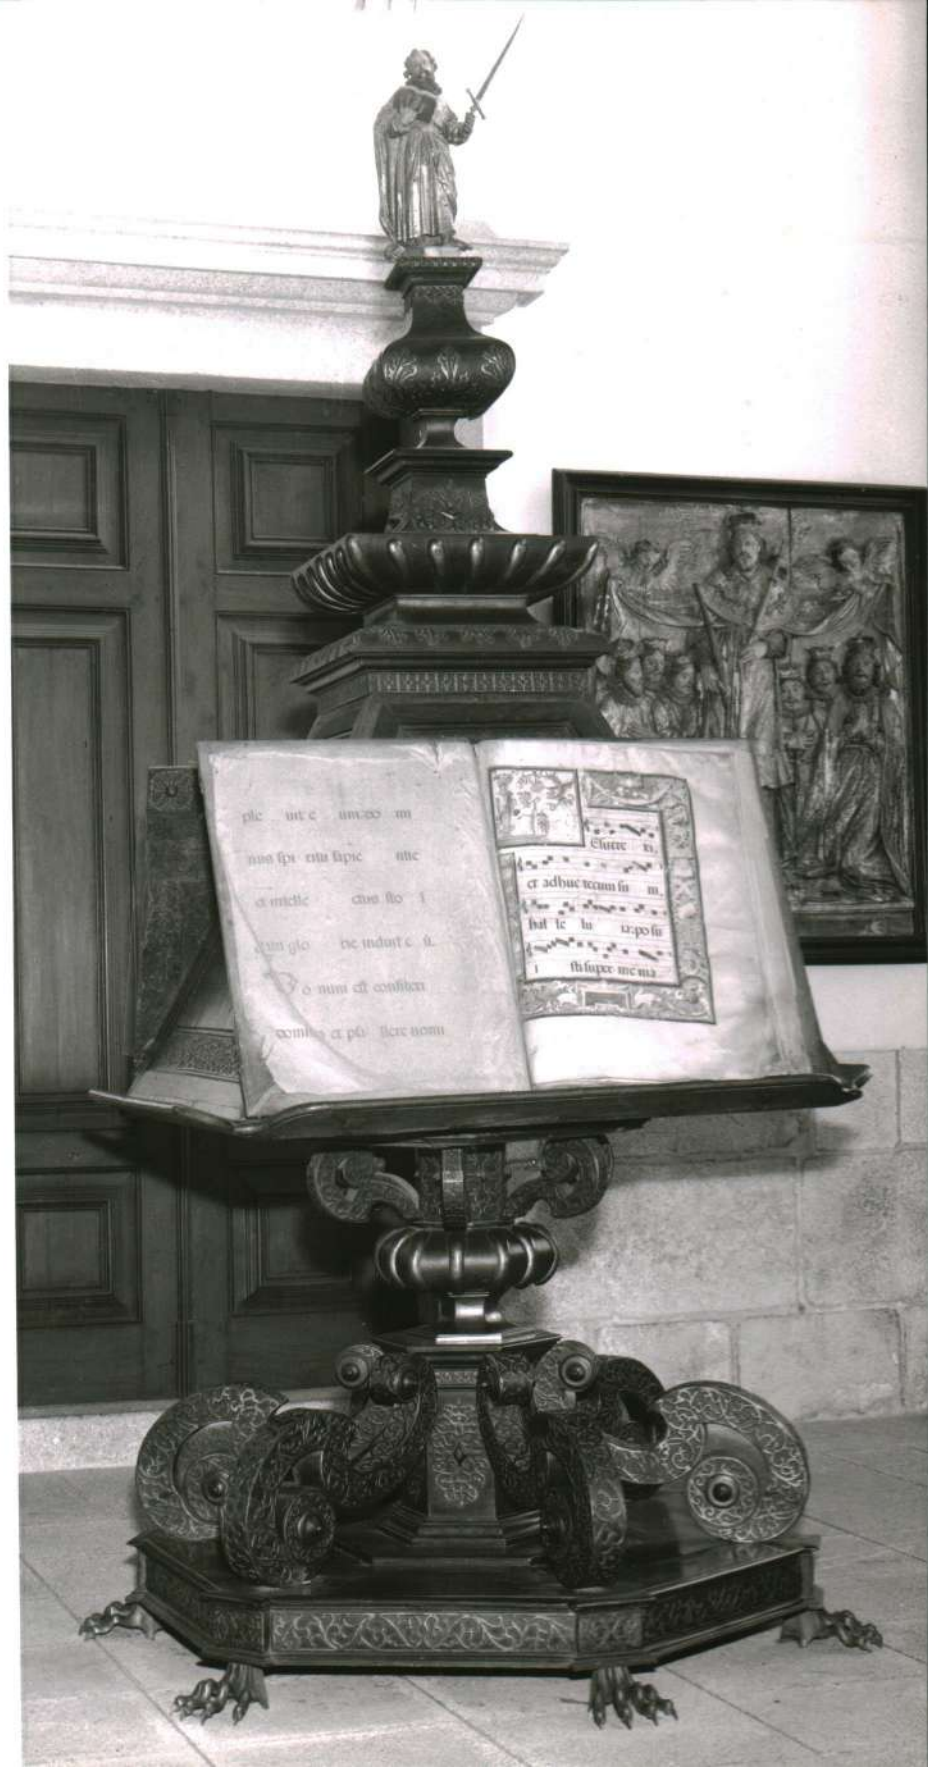 ple uit e um: do mi
nus spi ritu sapie ntie
et intelle ctus sto l
am glo rie induit e ū.
Bo num est confiteri
domino et psa llere nomi
Esurre xi.
et adhuc tecum su m.
hal le lu ia: posu
i sti super me ma